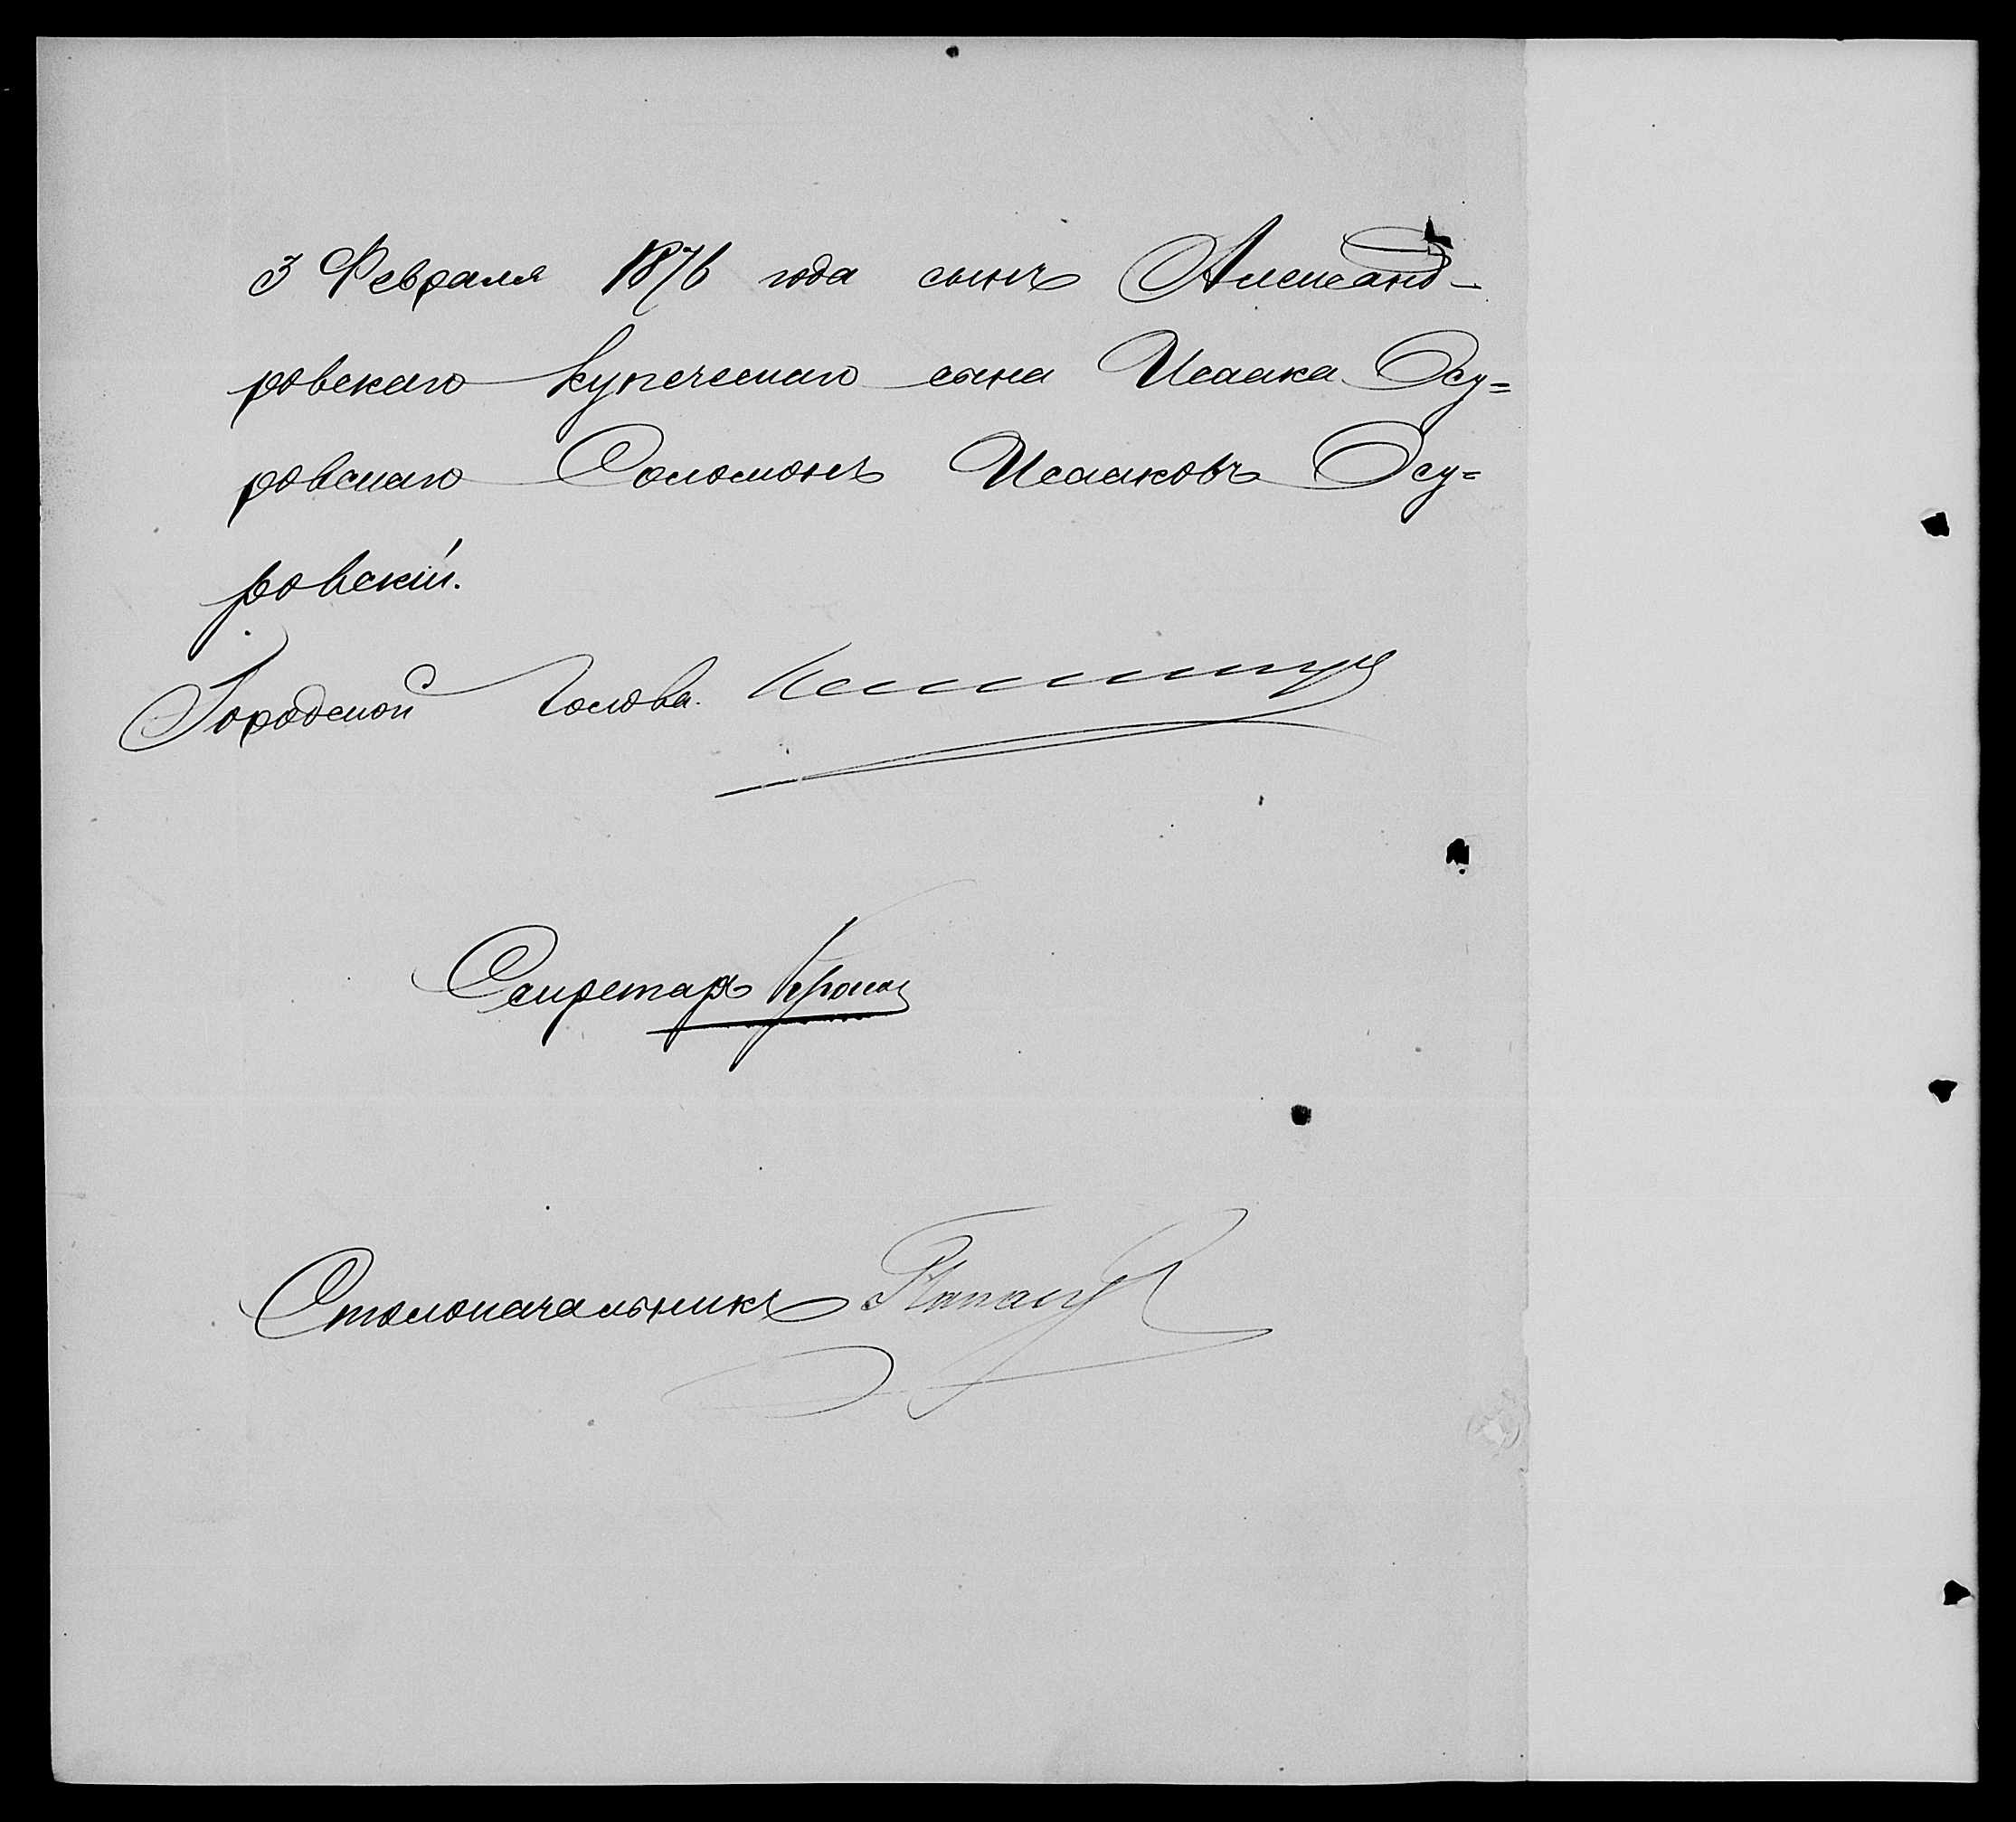 3 Февраля 1876 года сынъ Александ-
ровскаго купеческаго сына Исаака Осу=
ровскаго Соломонъ Исааковъ Осу=
ровскій.
Городской Голова.
Секретарь
Столоначальникъ